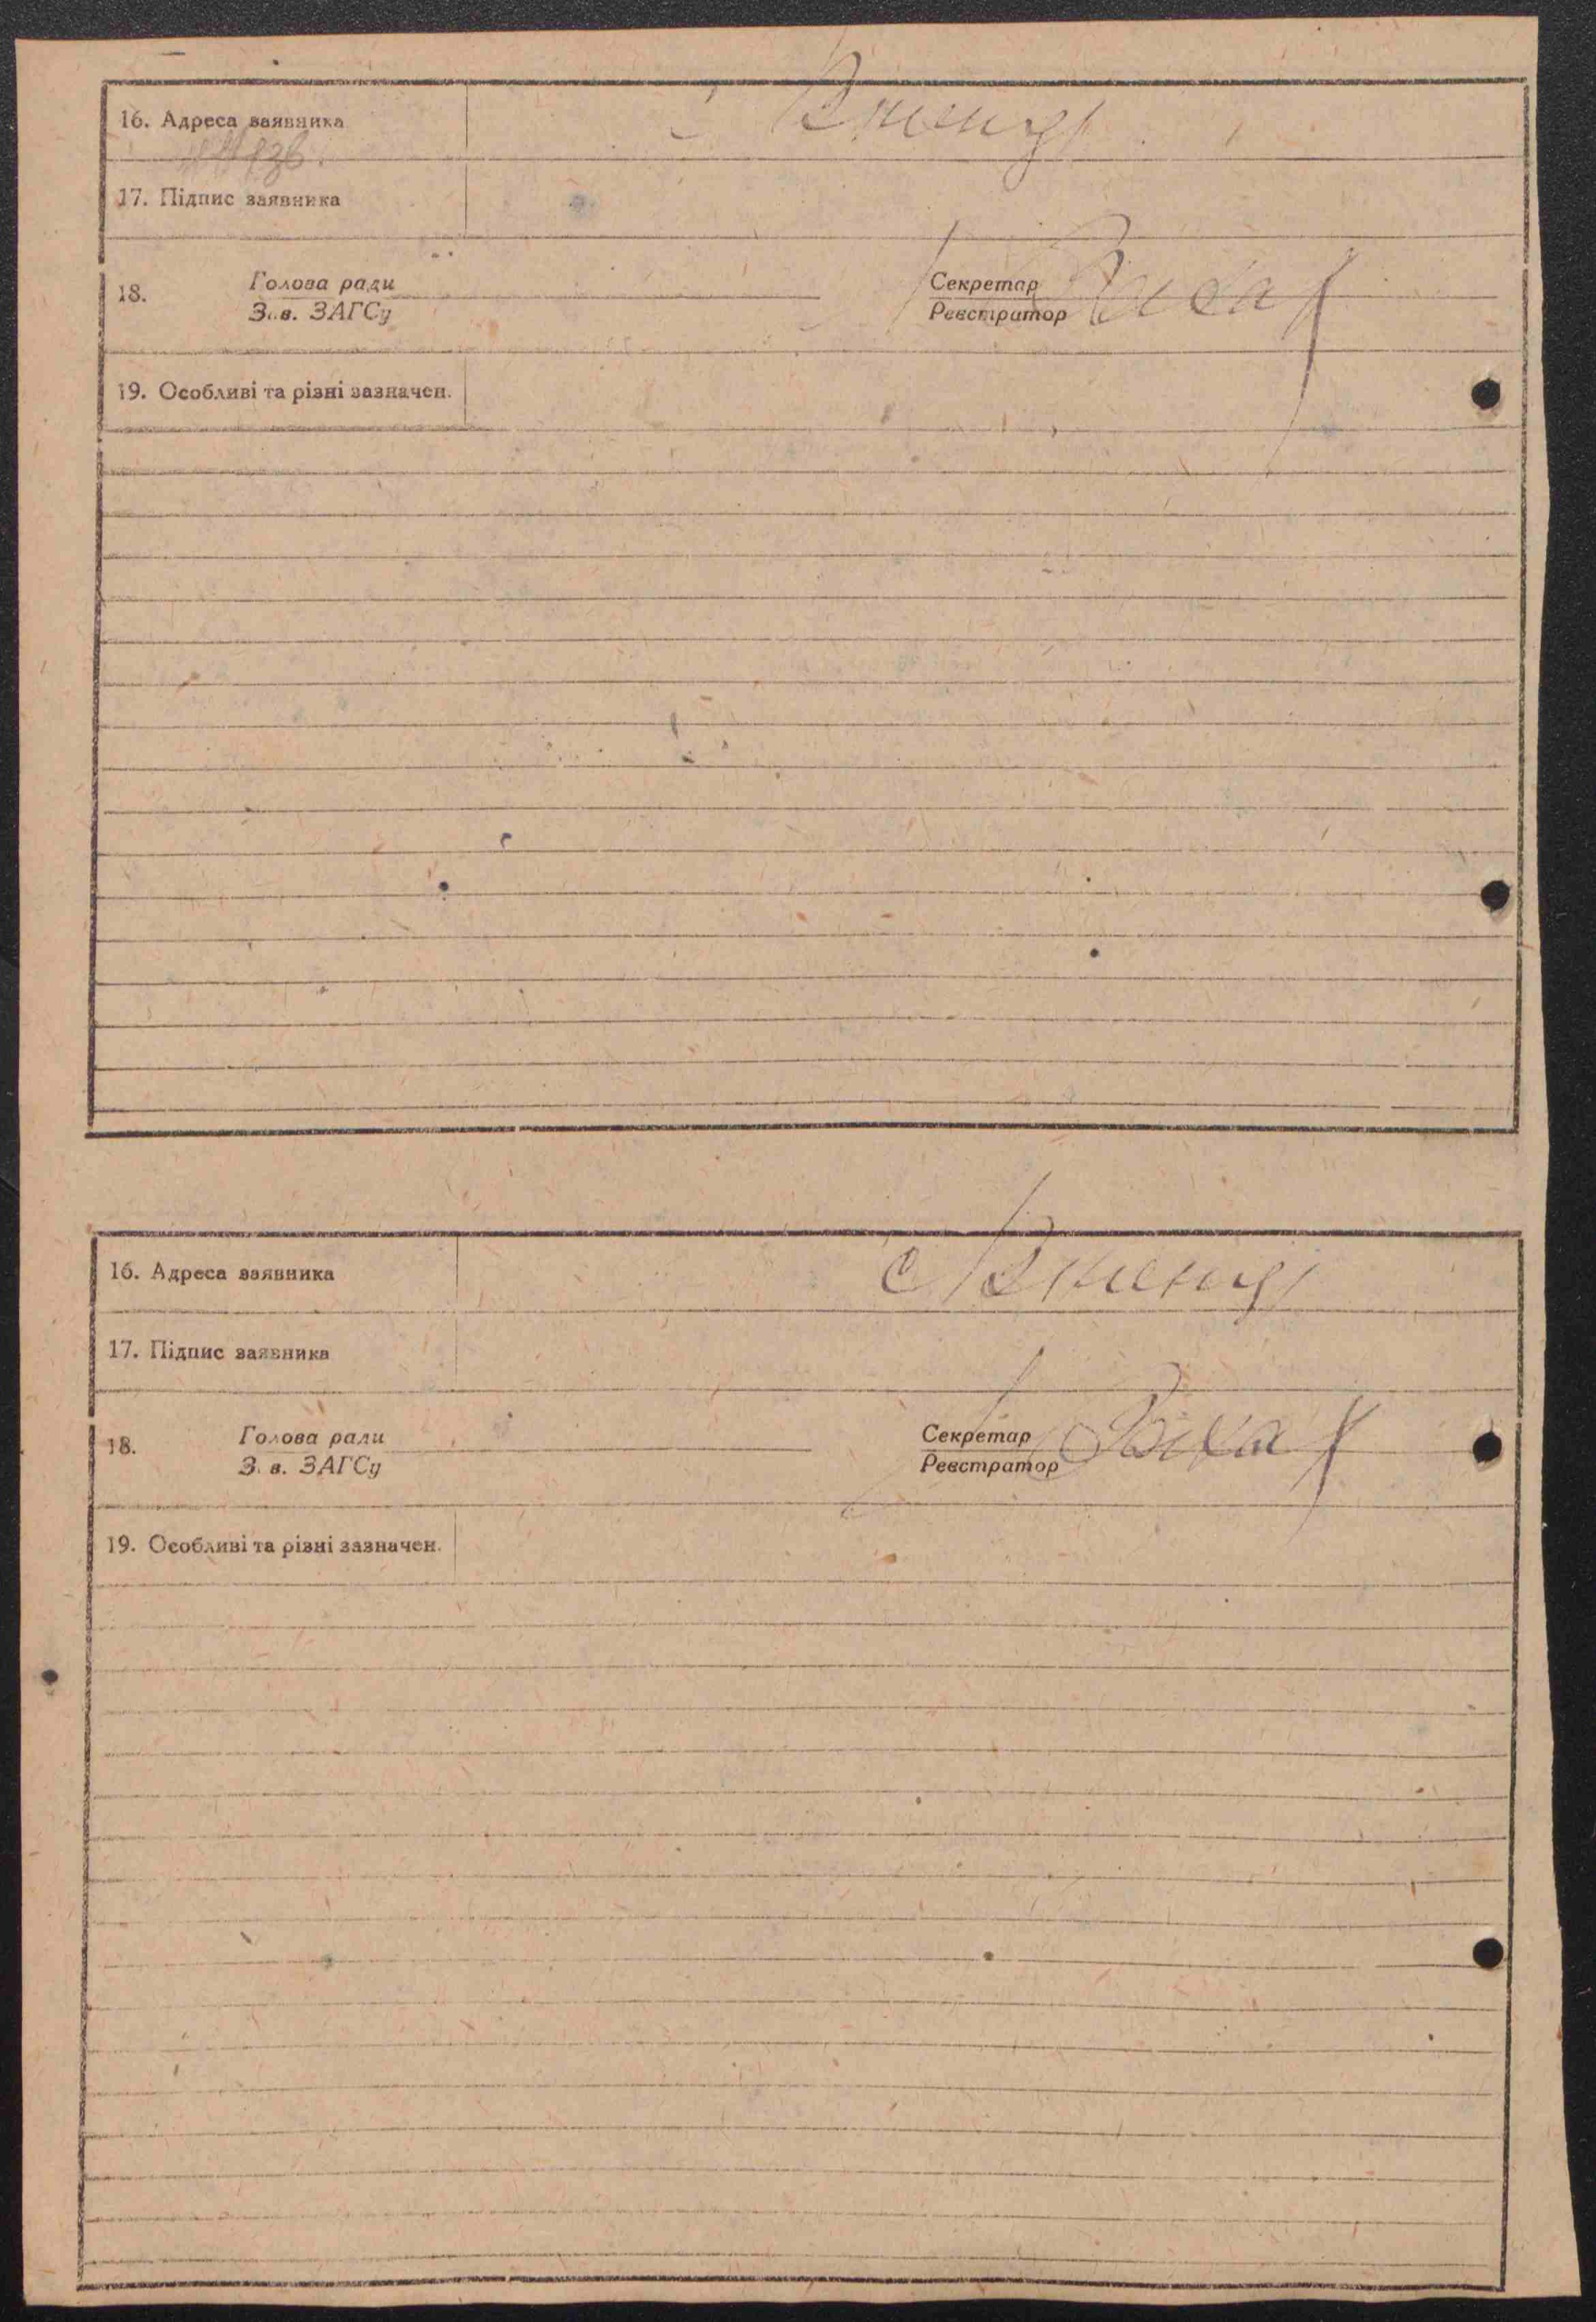 16. Адреса заявника
17. Підпис заявника
18. Голова ради Секретар
Зав. ЗАГСу Реєстратор
19. Особливі та різні зазначен.
16. Адреса заявника с
17. Підпис заявника
18. Голова ради Секретар
Зав. ЗАГСу Реєстратор
19. Особливі та різні зазначен.